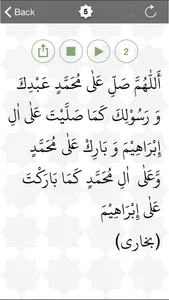 Back
5
2
أَللّٰهُمَّ صَلِّ عَلٰى مُحَمَّدٍ عَبْدِكَ
وَ رَسُوْلِكَ كَمَا صَلَّيْتَ عَلٰى اٰلِ
إِبْرَاهِيْمَ وَ بَارِكْ عَلٰى مُحَمَّدٍ
وَّعَلٰى اٰلِ مُحَمَّدٍ كَمَا بَارَكْتَ
عَلٰى إِبْرَاهِيْمَ
(بخاری)